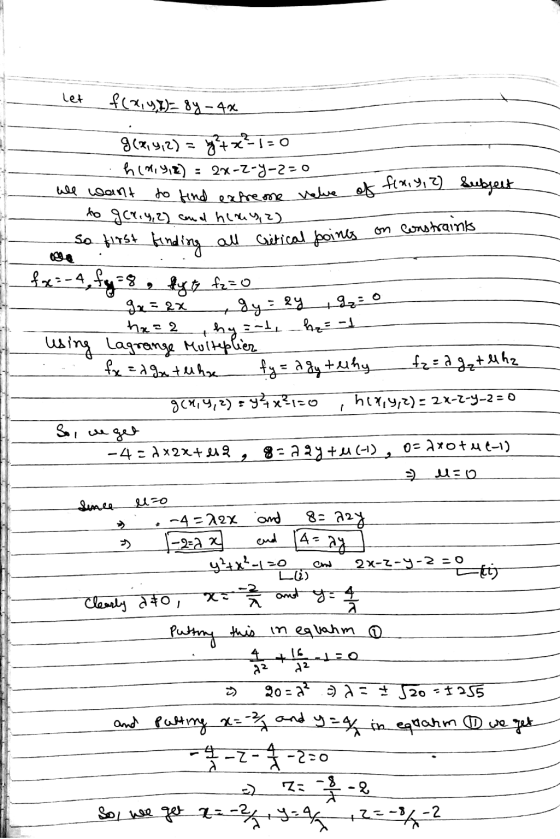 Let f(x,y,z) = 8y - 4x
g(x,y,z) = y²+x²-1=0
h(x,y,z) = 2x-z-y-2=0
we want to find extreme value of f(x,y,z) subject
to g(x,y,z) and h(x,y,z)
So first finding all critical points on constraints
fx=-4, fy=8, fz=0
gx=2x, gy=2y, gz=0
hx=2, hy=-1, hz=-1
Using Lagrange Multiplier
fx=λgx+μhx fy=λgy+μhy fz=λgz+μhz
g(x,y,z)=y²+x²-1=0, h(x,y,z)=2x-z-y-2=0
So, we get
-4=λ×2x+μ2, 8=λ2y+μ(-1), 0=λ×0+μ(-1)
⇒ μ=0
Since μ=0
⇒ -4=λ2x and 8=λ2y
⇒ -2=λx and 4=λy
y²+x²-1=0 and 2x-z-y-2=0
(i) (ii)
Clearly λ≠0, x=-2/λ and y=4/λ
Putting this in equation ①
4/λ²+16/λ²-1=0
⇒ 20=λ² ⇒ λ=±√20=±2√5
and putting x=-2/λ and y=4/λ in equation ⑪ we get
-4/λ-z-4/λ-2=0
⇒ z=-8/λ-2
So, we get x=-2/λ, y=4/λ, z=-8/λ-2